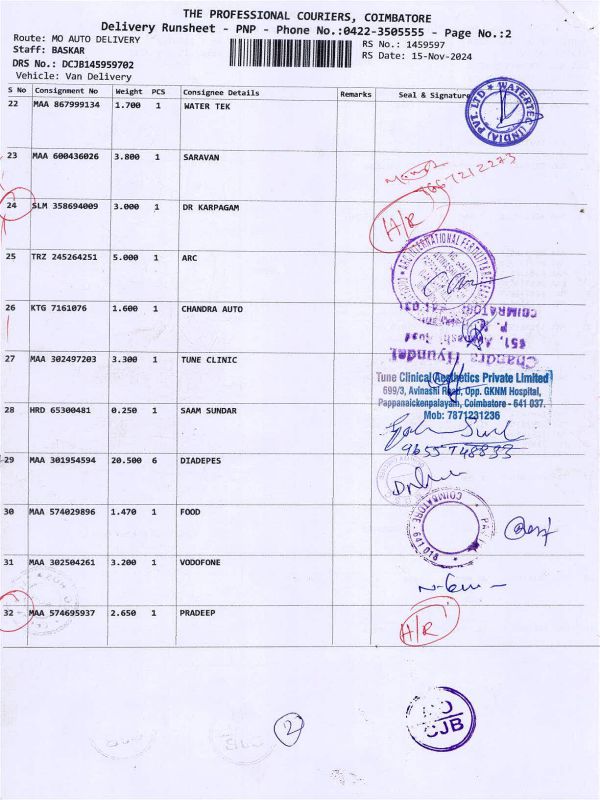 THE PROFESSIONAL COURIERS, COIMBATORE
Delivery Runsheet - PNP - Phone No.:0422-3505555 - Page No.:2
Route: MO AUTO DELIVERY RS No.: 1459597
Staff: BASKAR RS Date: 15-Nov-2024
DRS No.: DCJB145959702
Vehicle: Van Delivery
S No Consignment No Weight PCS Consignee Details Remarks Seal & Signature
22 MAA 867999134 1.700 1 WATER TEK
WATERTEC (INDIA) PVT. LTD
23 MAA 600436026 3.800 1 SARAVAN
24 SLM 358694009 3.000 1 DR KARPAGAM
H/R
25 TRZ 245264251 5.000 1 ARC
26 KTG 7161076 1.600 1 CHANDRA AUTO
COIMBATORE
Chandra Hyundai
27 MAA 302497203 3.300 1 TUNE CLINIC
Tune Clinical Aesthetics Private Limited
699/3, Avinashi Road, Opp. GKNM Hospital,
Pappanaickenpalayam, Coimbatore - 641 037.
Mob: 7871231236
28 HRD 65300481 0.250 1 SAAM SUNDAR
9655748833
29 MAA 301954594 20.500 6 DIADEPES
30 MAA 574029896 1.470 1 FOOD
COIMBATORE
641 018
31 MAA 302504261 3.200 1 VODOFONE
32 MAA 574695937 2.650 1 PRADEEP
H/R
2
CJB